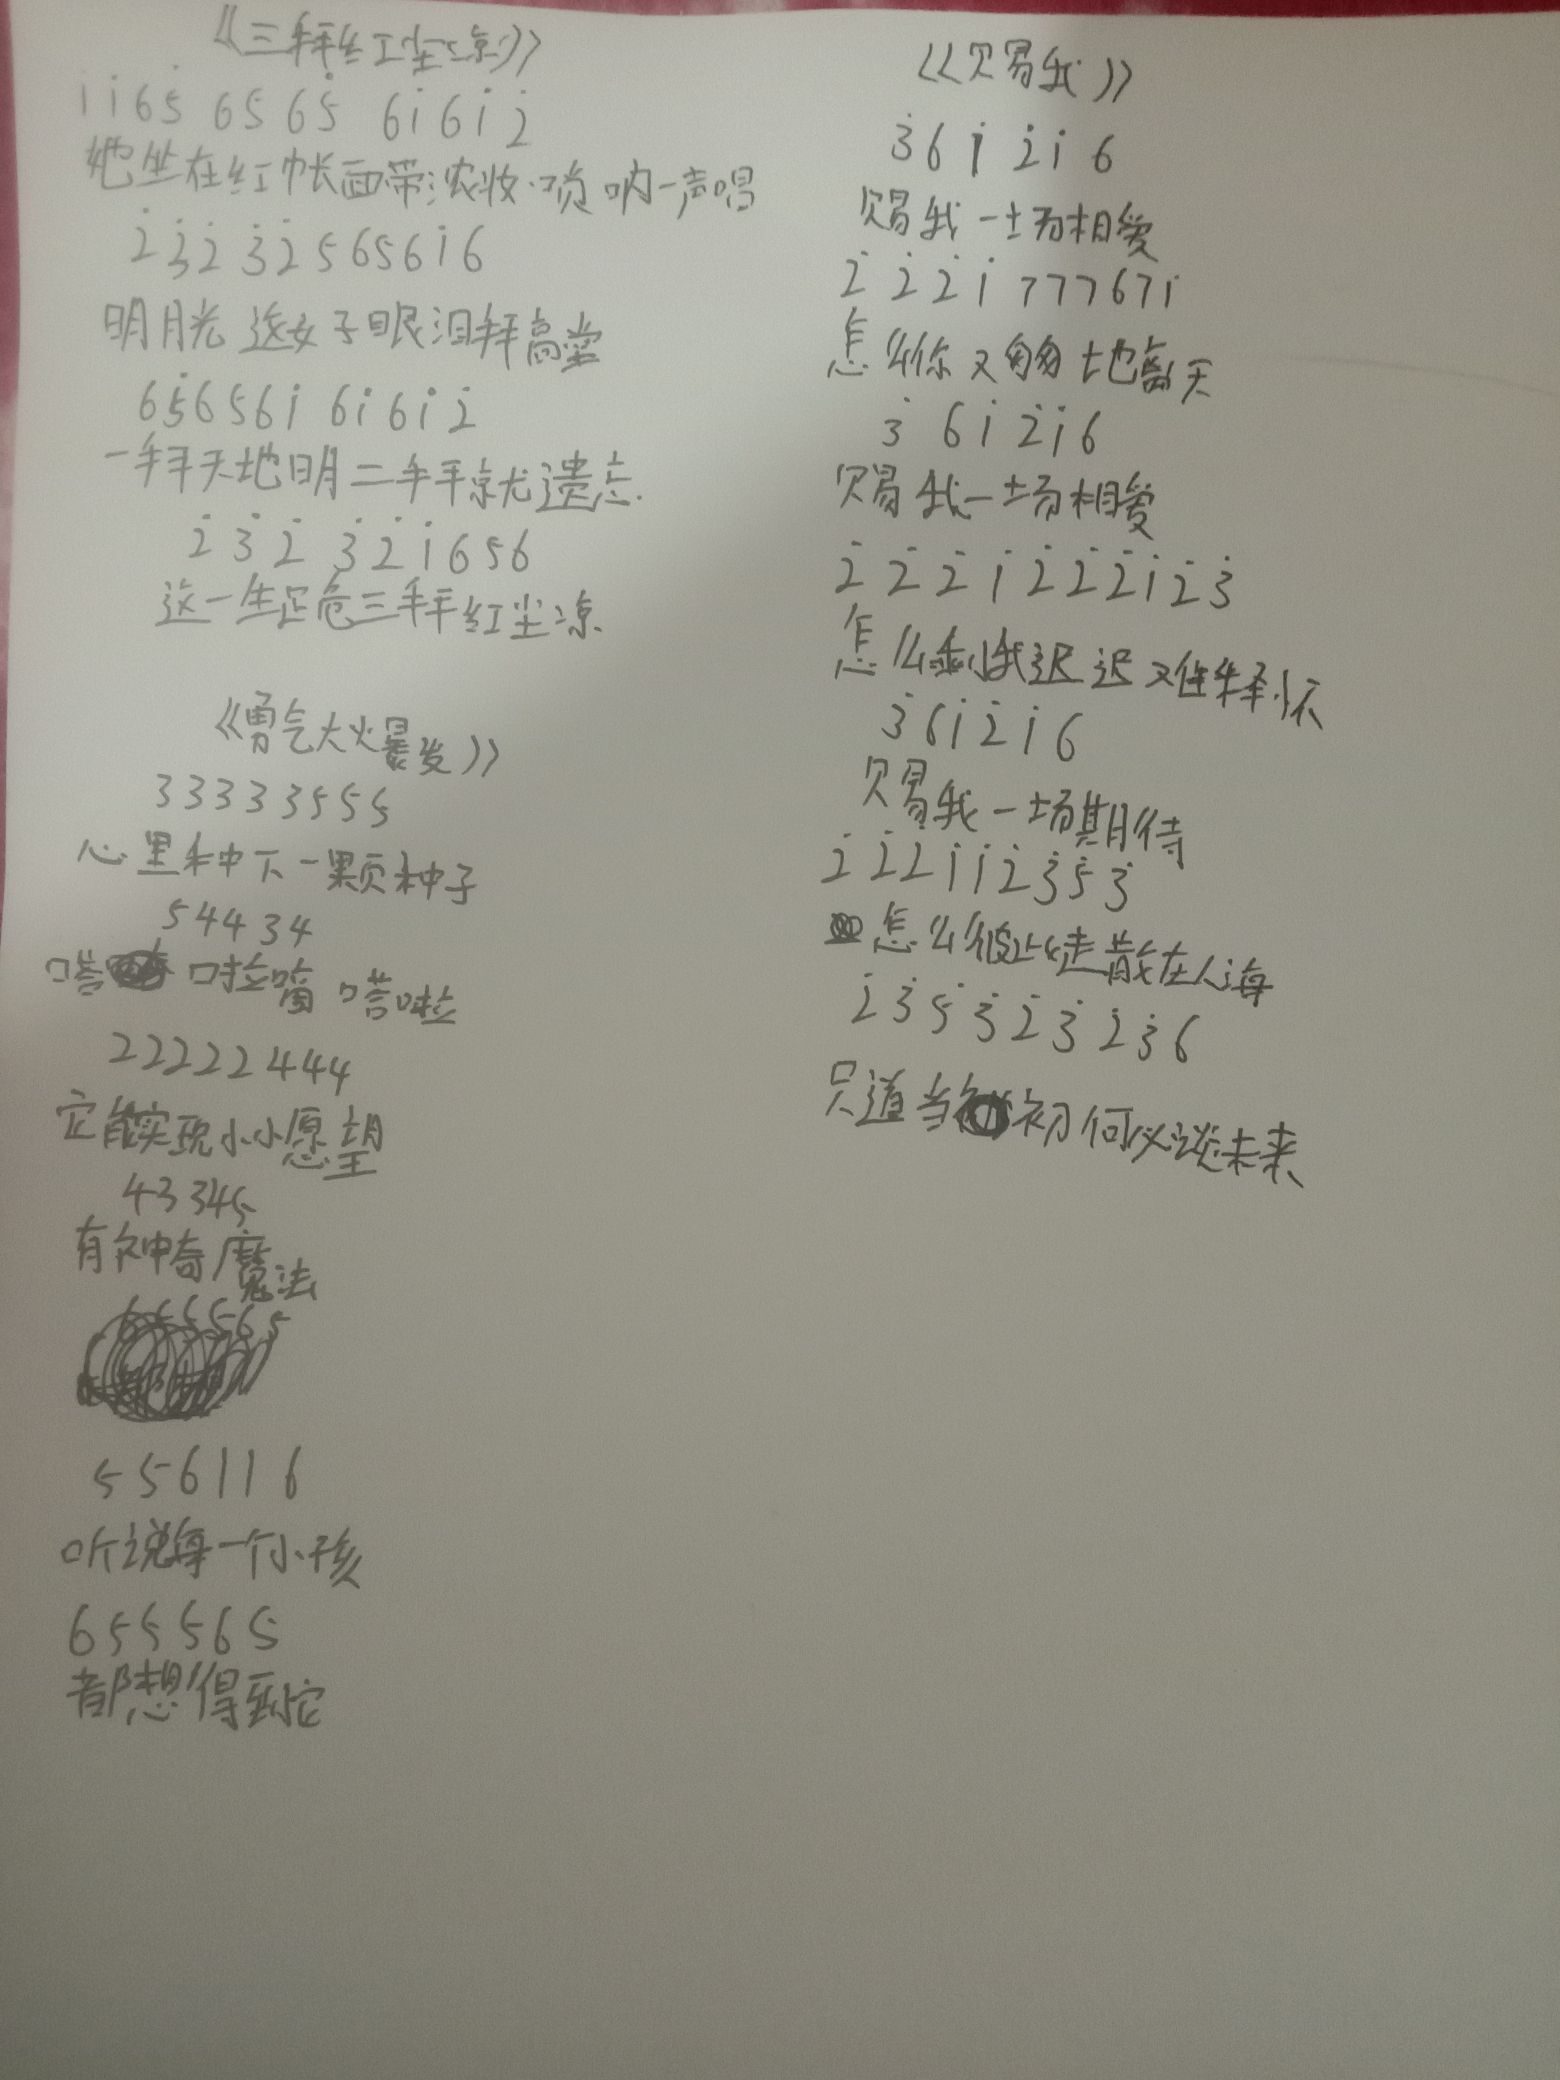 《三拜红尘凉》
i̇ i̇ 6 5̇ 6 5 6 5̇ 6 i̇ 6 i̇ 2̇
她坐在红帐面带浓妆唢呐一声唱
2̇ 3̇ 2̇ 3̇ 2̇ 5 6 5 6 i̇ 6
明月光这女子眼泪拜高堂
6 5̇ 6 5 6 i̇ 6 i̇ 6 i̇ 2̇
一拜天地明二拜就遗忘
2̇ 3̇ 2̇ 3̇ 2̇ i̇ 6 5 6
这一生足危三拜红尘凉
《勇气大爆发》
3 3 3 3 3 5 5 5
心里种下一颗种子
5 4 4 3 4
嗒啦嘀嗒啦
2 2 2 2 2 4 4 4
它能实现小小愿望
4 3 3 4 5
有神奇魔法
5 5 6 1 1 6
听说每一个小孩
6 5 5 5 6 5
都想得到它
《赐我》
3̇ 6 i̇ 2̇ i̇ 6
赐我一场相爱
2̇ 2̇ 2̇ i̇ 7 7 7 6 7 i̇
怎么你又够地离天
3̇ 6 i̇ 2̇ i̇ 6
赐我一场相爱
2̇ 2̇ 2̇ i̇ 2̇ 2̇ 2̇ i̇ 2̇ 3̇
怎么剩我迟迟难释怀
3̇ 6 i̇ 2̇ i̇ 6
赐我一场期待
2̇ 2̇ 2̇ i̇ i̇ 2̇ 3̇ 5̇ 3̇
怎么彼此走散在人海
2̇ 3̇ 5̇ 3̇ 2̇ 3̇ 2̇ 3̇ 6
只道当初何必谈未来